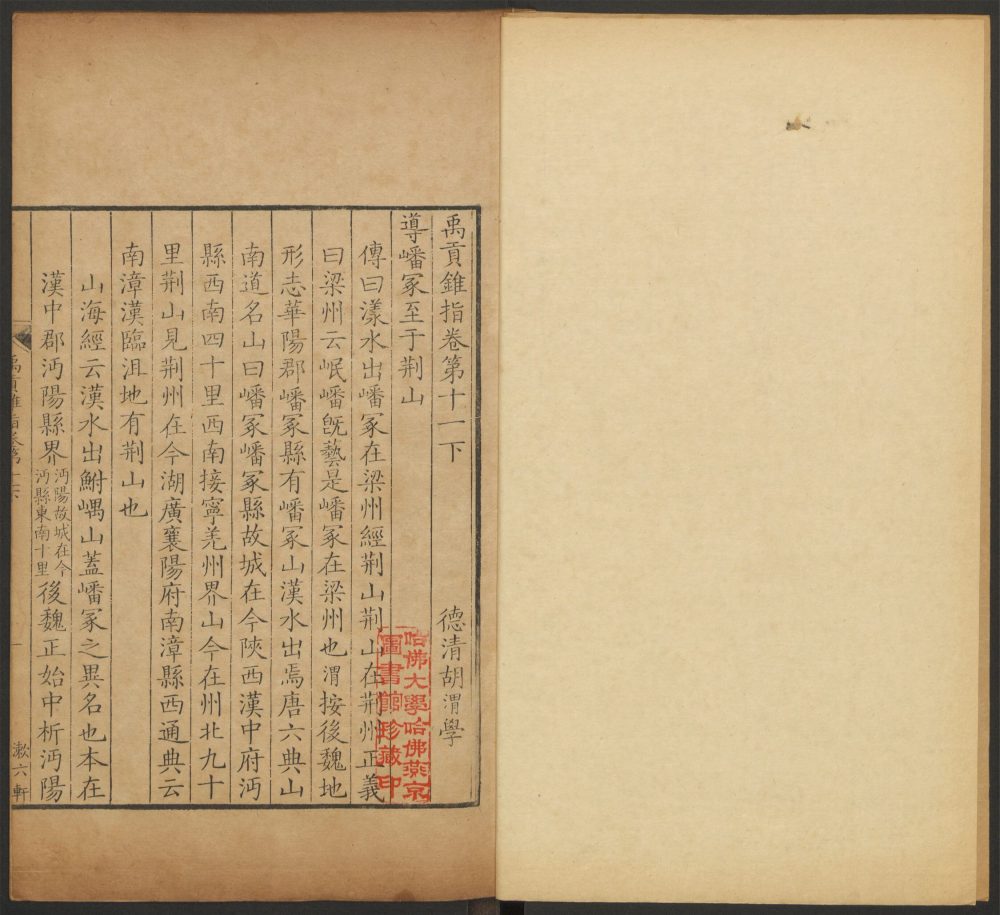 禹貢錐指卷第十一下
德清胡渭學
導嶓冢至于荆山
傳曰漾水出嶓冢在梁州經荆山荆山在荆州正義
曰梁州云岷嶓旣藝是嶓冢在梁州也渭按後魏地
形志華陽郡嶓冢縣有嶓冢山漢水出焉唐六典山
南道名山曰嶓冢嶓冢縣故城在今陝西漢中府沔
縣西南四十里西南接寧羌州界山今在州北九十
里荆山見荆州在今湖廣襄陽府南漳縣西通典云
南漳漢臨沮地有荆山也
山海經云漢水出鮒嵎山蓋嶓冢之異名也本在
漢中郡沔陽縣界沔陽故城在今沔縣東南十里後魏正始中析沔陽
禹貢錐指卷第十一下
漱六軒
哈佛大學哈佛燕京
圖書館珍藏印